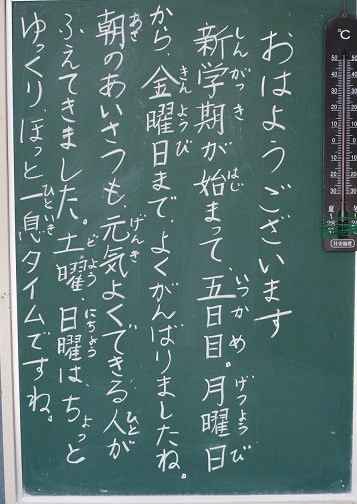 おはようございます
新学期が始まって、五日目。月曜日
しんがっき はじ いつかめ げつようび
から、金曜日まで、よくがんばりましたね。
きんようび
朝のあいさつも、元気よくできる人が
あさ げんき ひと
ふえてきました。土曜、日曜は、ちょっと
どよう にちよう
ゆっくり、ほっと一息タイムですね。
ひといき
℃
50 50
40 40
30 30
20 20
10 10
0 0
10 10
20 20
30 30
夏 冬
目安温度